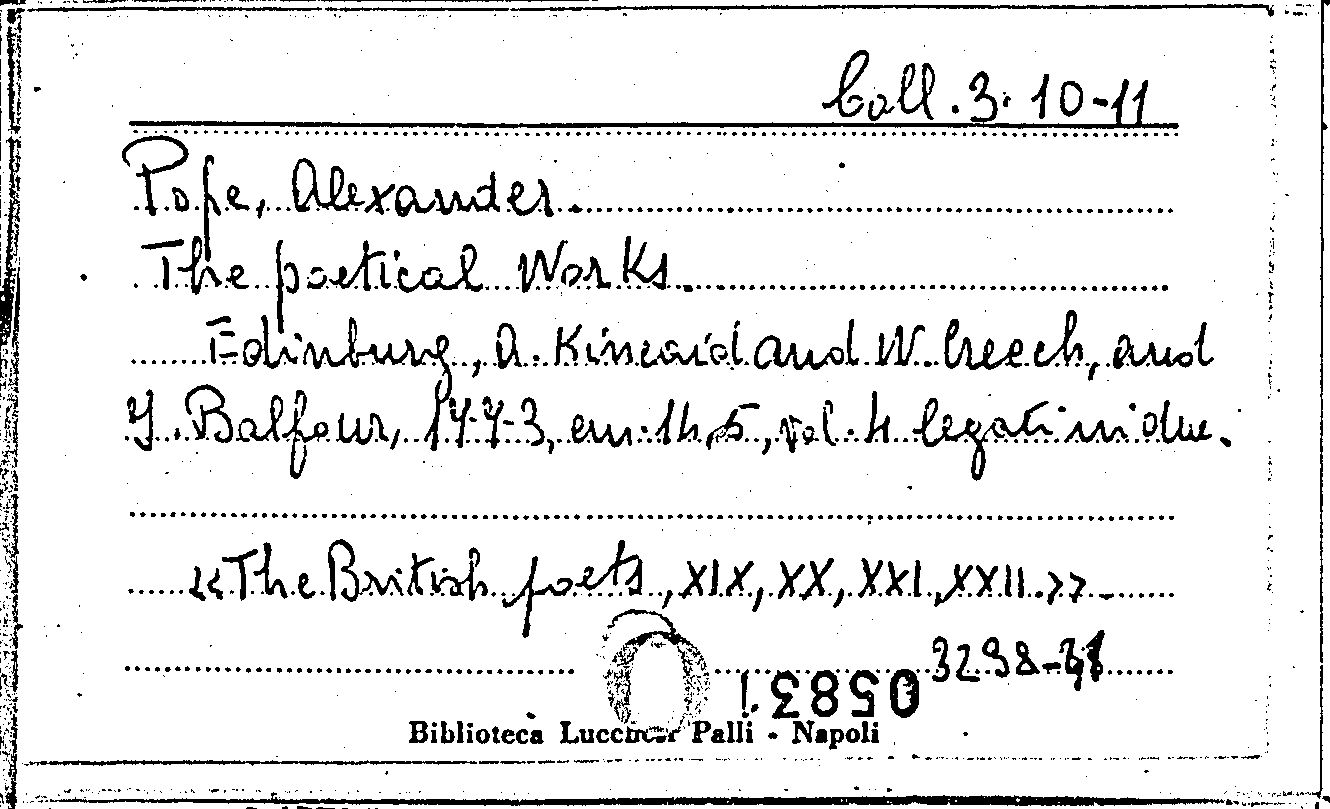 Coll. 3. 10-11
Pope, Alexander.
The poetical Works.
Edinburg, A. Kincaid and W. Creech, and
J. Balfour, 1773, cm. 14,5, vol. 4 legati in due.
«The British poets, XIX, XX, XXI, XXII.»
3298-
05831
Biblioteca Lucchesi Palli - Napoli